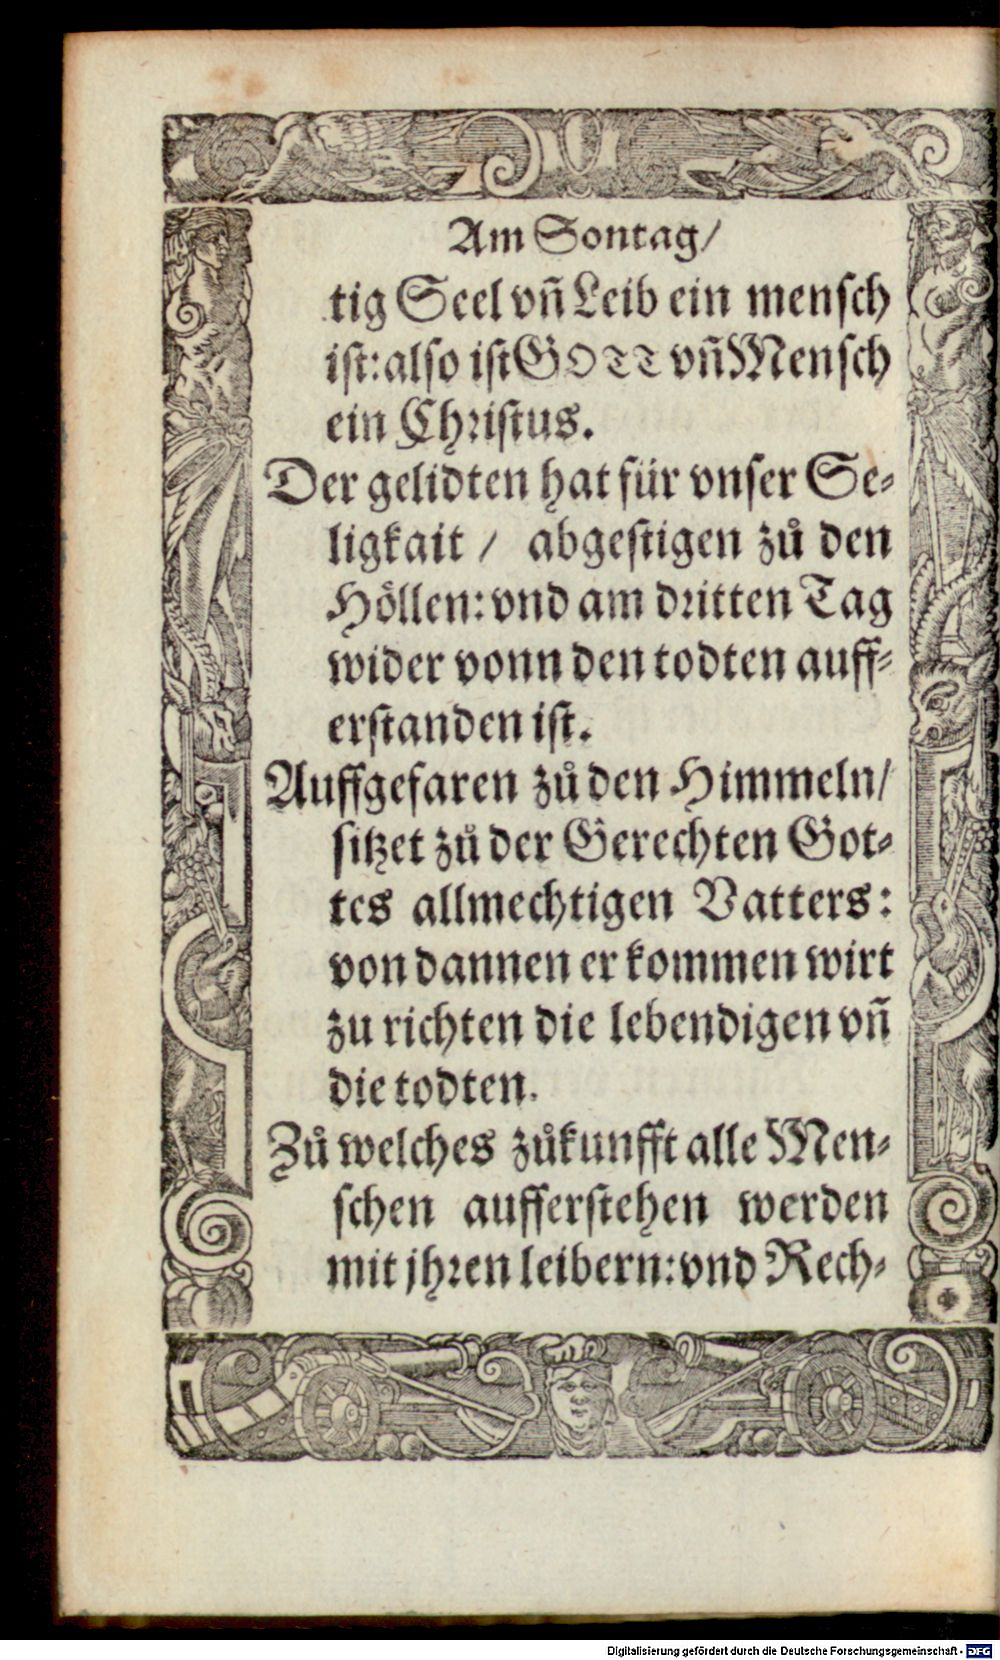 Am Sontag/
tig Seel vñ Leib ein mensch
ist: also ist GOTT vñ Mensch
ein Christus.
Der gelidten hat für vnser Se-
ligkait / abgestigen zů den
Höllen: vnd am dritten Tag
wider vonn den todten auff-
erstanden ist.
Auffgefaren zů den Himmeln/
sitzet zů der Gerechten Got-
tes allmechtigen Vatters:
von dannen er kommen wirt
zu richten die lebendigen vñ
die todten.
Zů welches zůkunfft alle Men-
schen aufferstehen werden
mit jhren leibern: vnd Rech-
Digitalisierung gefördert durch die Deutsche Forschungsgemeinschaft - DFG